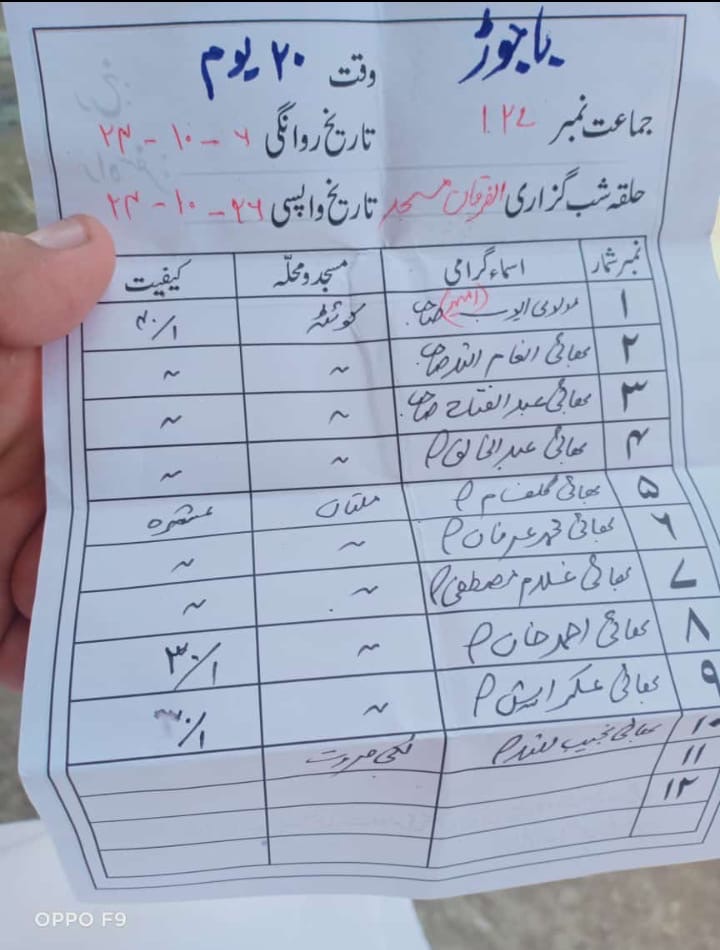 باجوڑ
وقت ۲۰ یوم
جماعت نمبر ۱۲۷
تاریخ روانگی ۶ - ۱۰ - ۲۴
حلقہ شب گزاری الفرقان مسجد
تاریخ واپسی ۲۶ - ۱۰ - ۲۴
نمبر شمار اسماء گرامی مسجد و محلّہ کیفیت
۱ مولوی ایوب (امیر) صاحب کوئٹہ ۴۰/۱
۲ بھائی انعام اللہ صاحب ~ ~
۳ بھائی عبدالفتاح صاحب ~ ~
۴ بھائی عبدالخالق م ~ ~
۵ بھائی گلفام م ملتان عشرہ
۶ بھائی محمد عرفان م ~ ~
۷ بھائی غلام مصطفی م ~ ~
۸ بھائی احمد خان م ~ ۳۰/۱
۹ بھائی م ~ ۳۰/۱
۱۰ بھائی نجیب اللہ م لکی مروت
۱۱
۱۲
OPPO F9